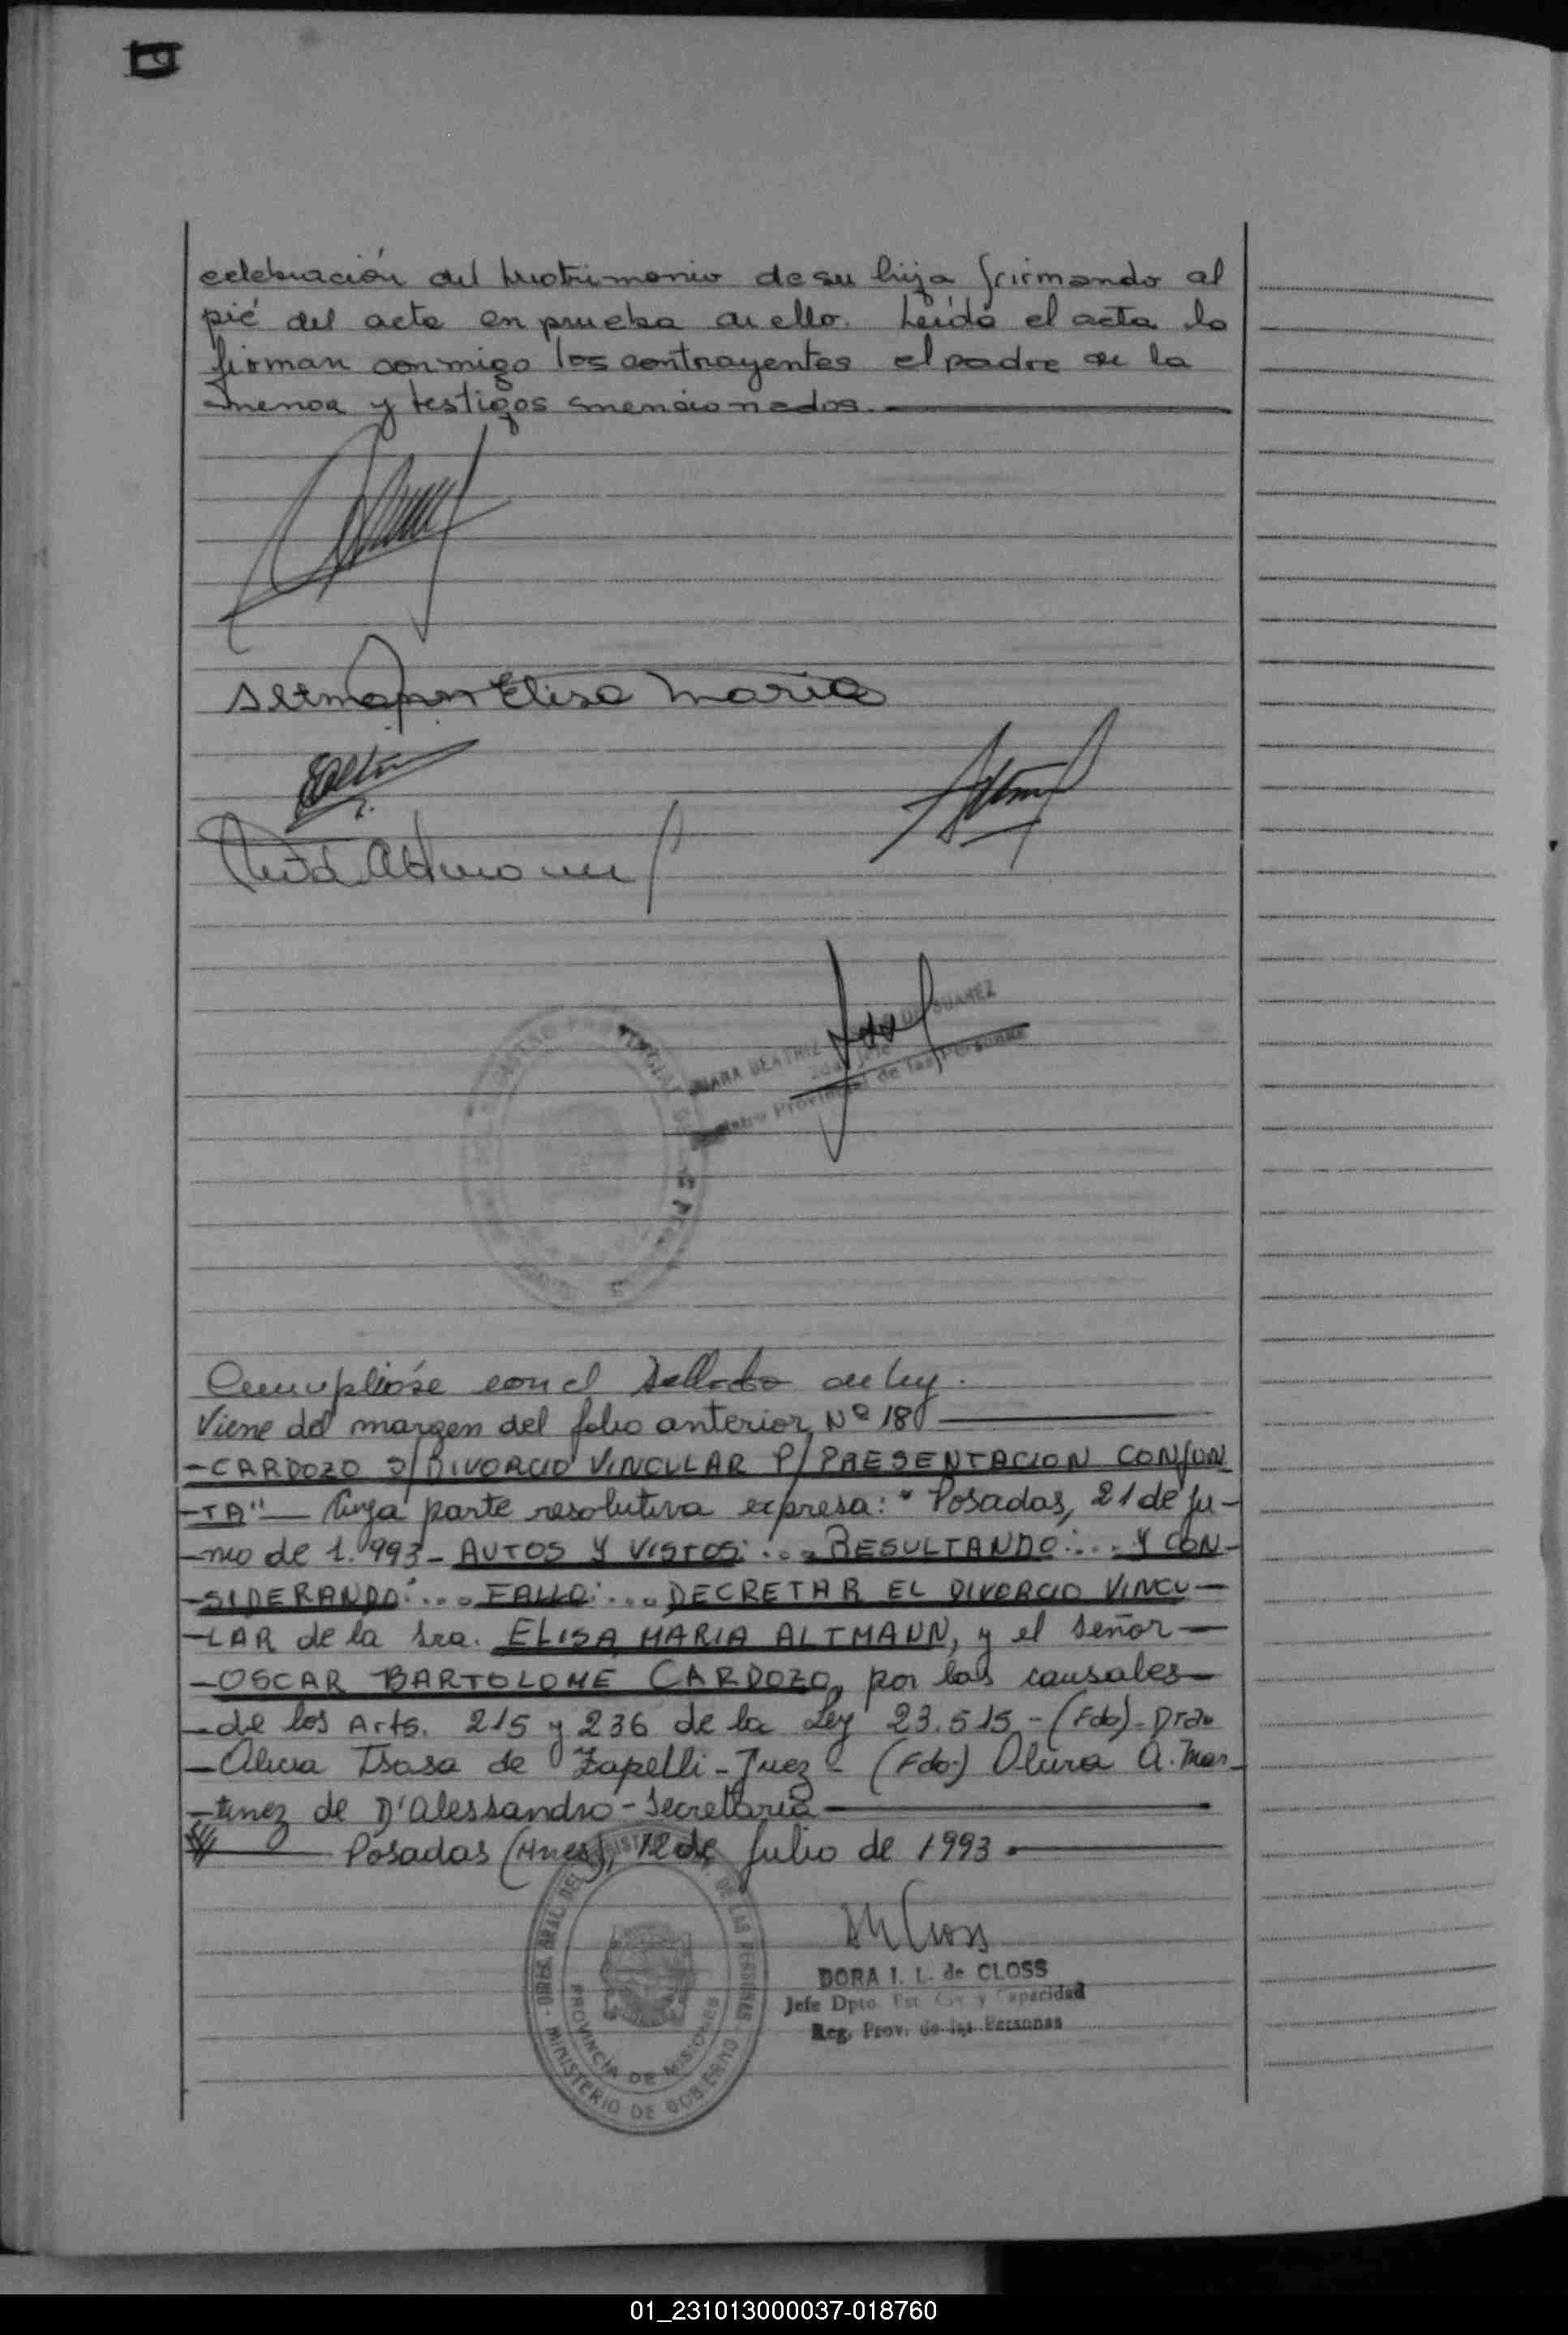 celebración del matrimonio de su hija firmando al
pié del acta en prueba de ello. Leída el acta la
firman conmigo los contrayentes el padre de la
menor y testigos mencionados.
Altmann Elisa Maria
JUANA BEATRIZ DE SUAREZ
Jefe
Registro Provincial de las Personas
Cumuplióse con el Sellado de ley.
Viene del margen del folio anterior, Nº 18
-CARDOZO S/DIVORCIO VINCULAR P/PRESENTACION CONJUN
-TA" Cuya parte resolutiva expresa: "Posadas, 21 de Ju-
-nio de 1.993- AUTOS Y VISTOS:... RESULTANDO:... Y CON-
-SIDERANDO:... FALLO:... DECRETAR EL DIVORCIO VINCU-
-LAR de la Sra. ELISA MARIA ALTMANN, y el señor-
-OSCAR BARTOLOME CARDOZO, por las causales-
-de los Arts. 215 y 236 de la Ley 23.515-(Fdo)- Dra.
-Alicia Isasa de Zapelli-Juez- (Fdo.) A. Mar-
-tinez de D'Alessandro-Secretaria
Posadas (Mnes), 12 de Julio de 1993.
DIREC. GRAL. DEL REGISTRO DE LAS PERSONAS
PROVINCIA DE MISIONES
MINISTERIO DE GOBIERNO
DORA I. L. de CLOSS
Jefe Dpto. Est. Civ. y Capacidad
Reg. Prov. de las Personas
01_231013000037-018760